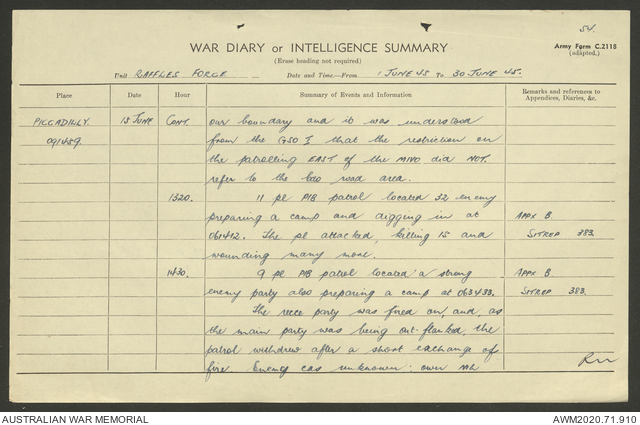 54.
WAR DIARY or INTELLIGENCE SUMMARY
(Erase heading not required)
Army Form C.2118
(adapted.)
Unit RAFFLES FORCE Date and Time—From 1 JUNE 45 To 30 JUNE 45.
Place Date Hour Summary of Events and Information Remarks and references to Appendices, Diaries, &c.
PICCADILLY. 15 JUNE CONT. our boundary and it was understood
091459. from the GSO I that the restriction on
the patrolling EAST of the MIVO did NOT.
refer to the road area.
1320. 11 pl PIB patrol located 32 enemy
preparing a camp and digging in at APPX B
061412. The pl attacked, killing 15 and SITREP 383.
wounding many more.
1430. 9 pl PIB patrol located a strong APPX B
enemy party also preparing a camp at 063433. SITREP 383.
The recce party was fired on, and, as
the main party was being out-flanked, the
patrol withdrew after a short exchange of
fire. Enemy cas unknown: own NIL
AUSTRALIAN WAR MEMORIAL AWM2020.71.910